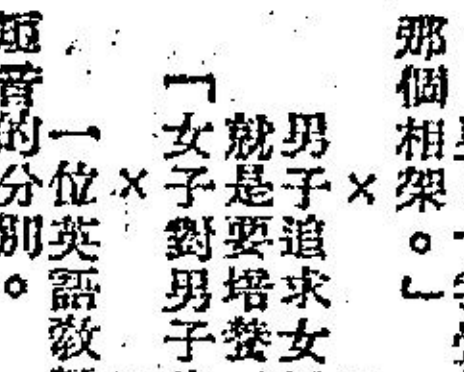 那個相架。」
×
男子追求女
就是要培養
「女子對男子
×
一位英語教
短音的分別。